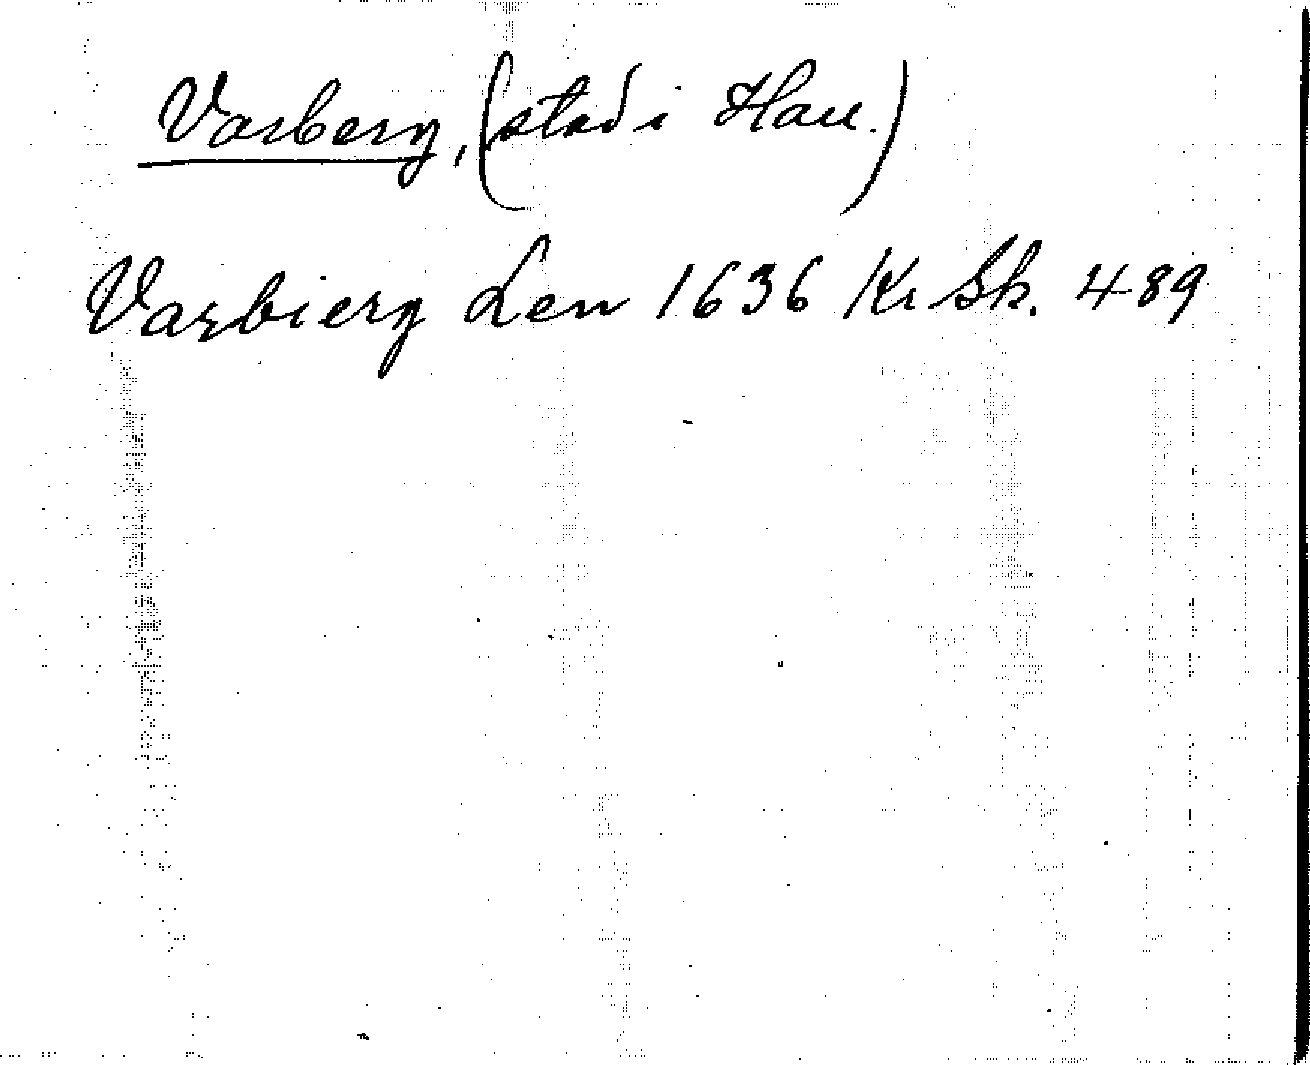 Varberg, (stad i Hall.)
Varbierg Len 1636 Kr Sk. 489